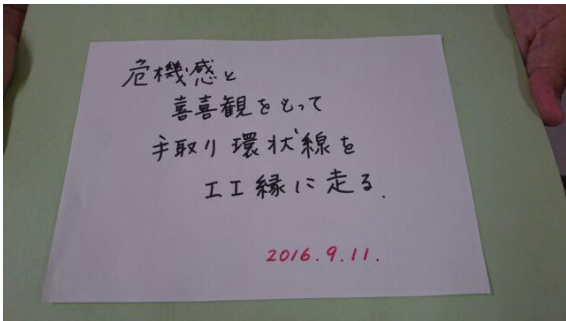 危機感と
喜喜観をもって
手取り環状線を
エエ縁に走る.
2016.9.11.